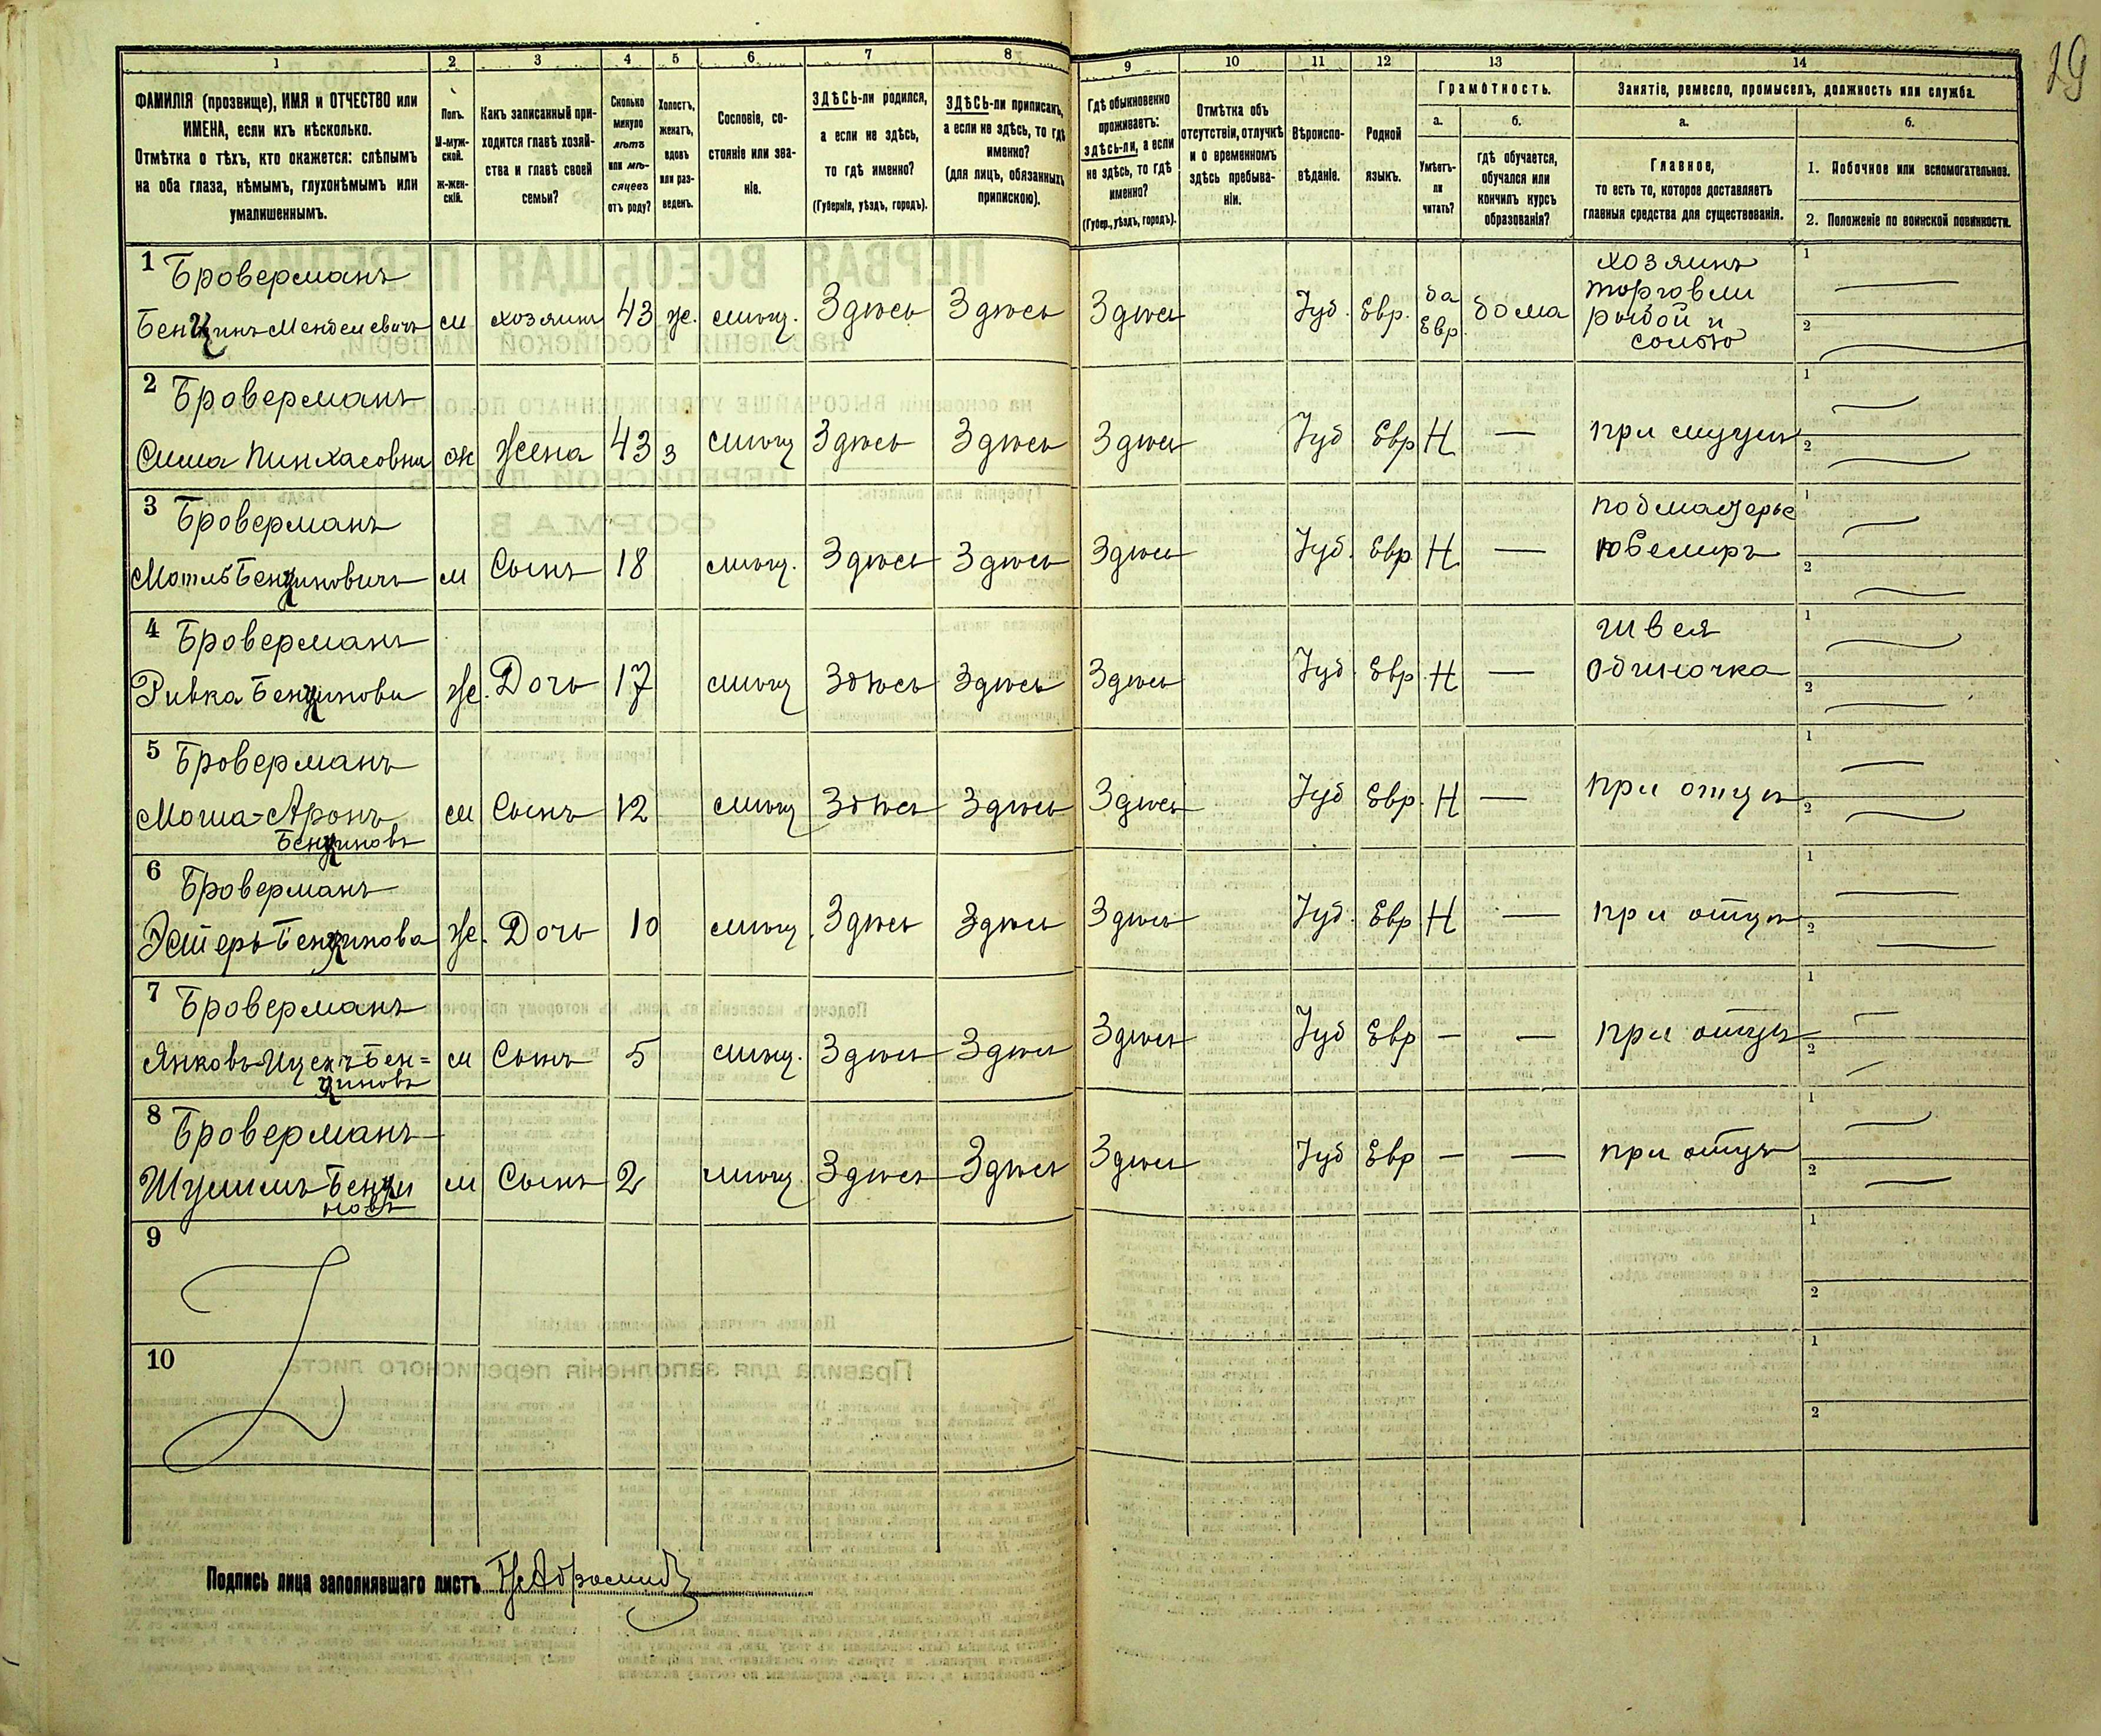 19
1 2 3 4 5 6 7 8 9 10 11 12 13 14
ФАМИЛІЯ (прозвище), ИМЯ и ОТЧЕСТВО или
ИМЕНА, если ихъ нѣсколько.
Отмѣтка о тѣхъ, кто окажется: слѣпымъ
на оба глаза, нѣмымъ, глухонѣмымъ или
умалишеннымъ.
Полъ.
М-муж-
ской.
Ж-жен-
скій.
Какъ записанный при-
ходится главѣ хозяй-
ства и главѣ своей
семьи?
Сколько
минуло
лѣтъ
или мѣ-
сяцевъ
отъ роду?
Холостъ,
женатъ,
вдовъ
или раз-
веденъ.
Сословіе, со-
стояніе или зва-
ніе.
ЗДѢСЬ-ли родился,
а если не здѣсь,
то гдѣ именно?
(Губернія, уѣздъ, городъ).
ЗДѢСЬ-ли приписанъ,
а если не здѣсь, то гдѣ
именно?
(для лицъ, обязанныхъ
припискою).
Гдѣ обыкновенно
проживаетъ:
здѣсь-ли, а если
не здѣсь, то гдѣ
именно?
(Губер., уѣздъ, городъ).
Отмѣтка объ
отсутствіи, отлучкѣ
и о временномъ
здѣсь пребыва-
ніи.
Вѣроиспо-
вѣданіе.
Родной
языкъ.
Грамотность.
а.
Умѣетъ-
ли
читать?
б.
гдѣ обучается,
обучался или
кончилъ курсъ
образованія?
Занятіе, ремесло, промыселъ, должность или служба.
а.
Главное,
то есть то, которое доставляетъ
главныя средства для существованія.
б.
1. Побочное или вспомогательное.
2. Положеніе по воинской повинности.
1 Броверманъ
Бенцинъ Менделевичъ м хозяинъ 43 же. мѣщ. Здѣсь Здѣсь Здѣсь Іуд. Евр. да Евр. дома хозяинъ торговли рыбой и солью 1 — 2 —
2 Броверманъ
Сима Пинхасовна ж Жена 43 з мѣщ Здѣсь Здѣсь Здѣсь Іуд Евр Н — при мужѣ 1 — 2 —
3 Броверманъ
Мотль Бенциновичъ м Сынъ 18 мѣщ. Здѣсь Здѣсь Здѣсь Іуд. Евр Н — подмастерье ювелиръ 1 — 2 —
4 Броверманъ
Ривка Бенцинова же. Дочь 17 мѣщ Здѣсь Здѣсь Здѣсь Іуд. Евр. Н — Швея одиночка 1 — 2 —
5 Броверманъ
Моша-Аронъ
Бенциновъ м Сынъ 12 мѣщ Здѣсь Здѣсь Здѣсь Іуд Евр. Н — при отцѣ 1 — 2 —
6 Броверманъ
Эстеръ Бенцинова же. Дочь 10 мѣщ. Здѣсь Здѣсь Здѣсь Іуд. Евр Н — при отцѣ 1 — 2 —
7 Броверманъ
Янковъ-Ицекъ Бен=
циновъ м Сынъ 5 мѣщ. Здѣсь Здѣсь Здѣсь Іуд Евр — — при отцѣ 1 — 2 —
8 Броверманъ
Шулимъ Бенци
новъ м Сынъ 2 мѣщ. Здѣсь Здѣсь Здѣсь Іуд Евр — — при отцѣ 1 — 2 —
9 1 2
10 1 2
Подпись лица заполнявшаго листъ